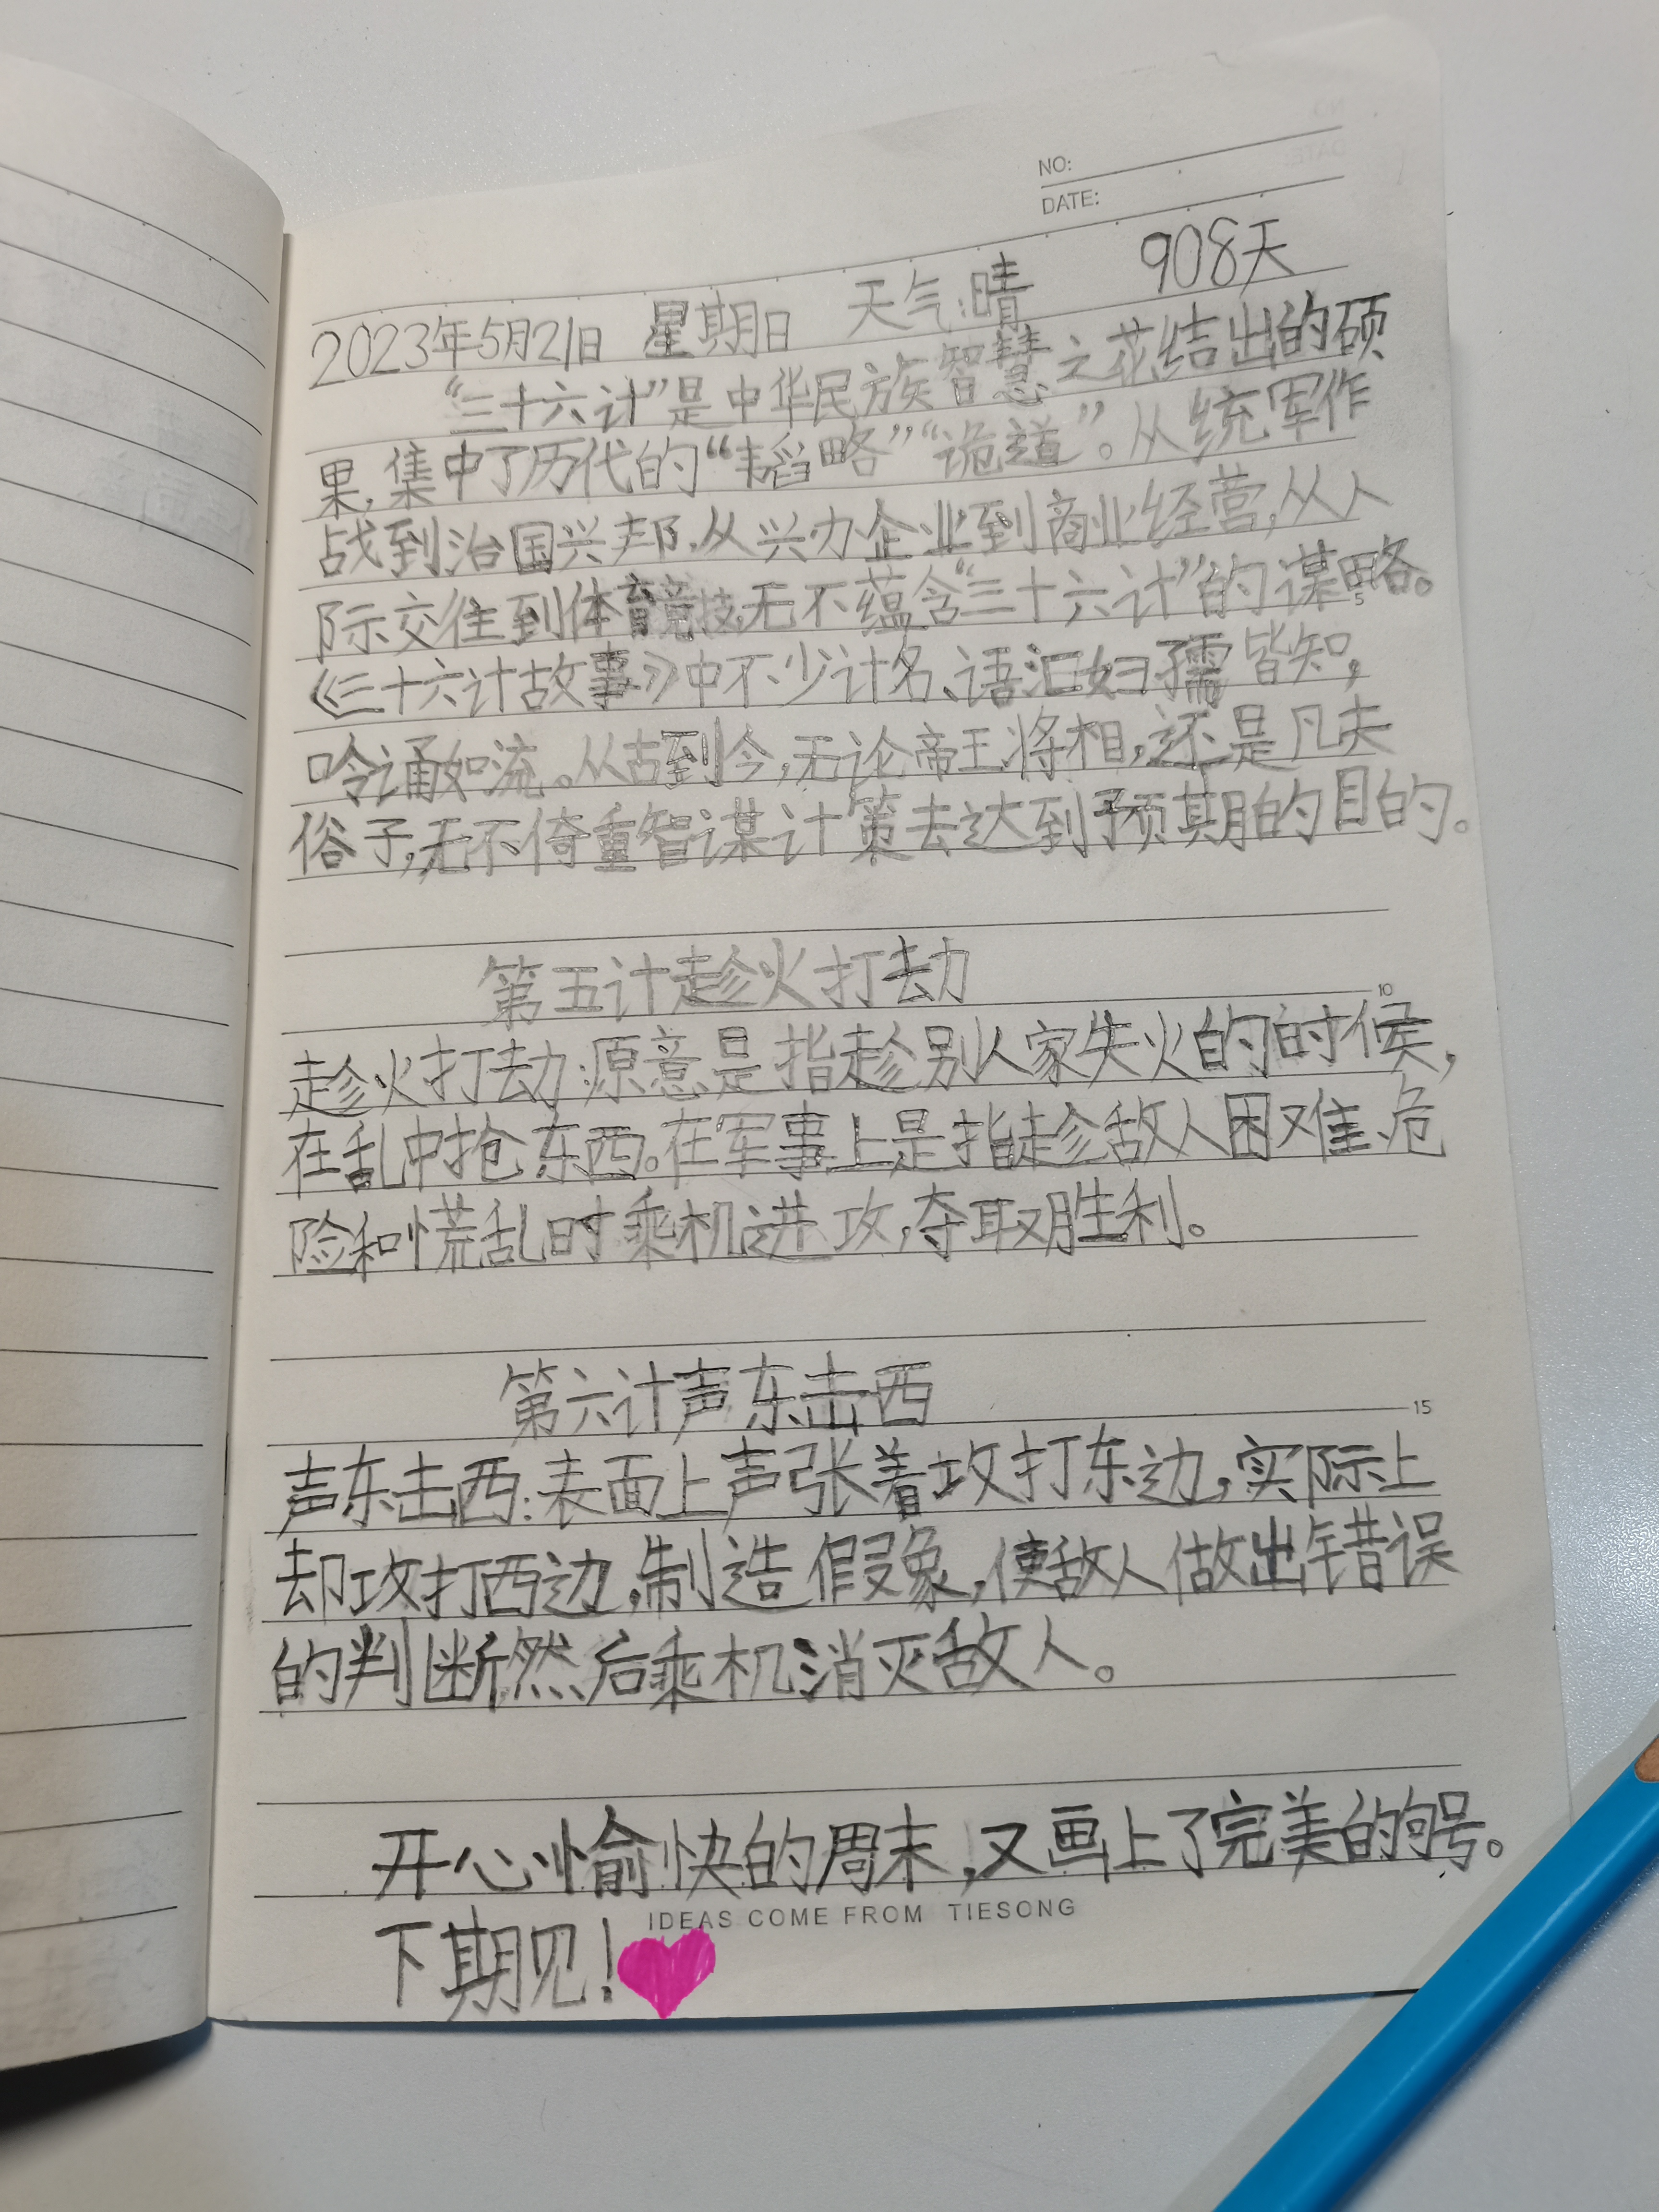 NO:
DATE:
2023年5月21日 星期日 天气:晴 908天
“三十六计”是中华民族智慧之花结出的硕
果,集中了历代的“韬略”“诡道”。从统军作
战到治国兴邦,从兴办企业到商业经营,从人
际交往到体育竞技,无不蕴含“三十六计”的谋略。
5
《三十六计故事》中不少计名、语汇妇孺皆知,
吟诵如流。从古到今,无论帝王将相,还是凡夫
俗子,无不倚重智谋计策去达到预期的目的。
第五计趁火打劫
10
趁火打劫:原意是指趁别人家失火的时候,
在乱中抢东西。在军事上是指趁敌人困难、危
险和慌乱时乘机进攻,夺取胜利。
第六计声东击西
15
声东击西:表面上声张着攻打东边,实际上
却攻打西边,制造假象,使敌人做出错误
的判断然后乘机消灭敌人。
开心愉快的周末,又画上了完美的句号。
IDEAS COME FROM TIESONG
下期见!